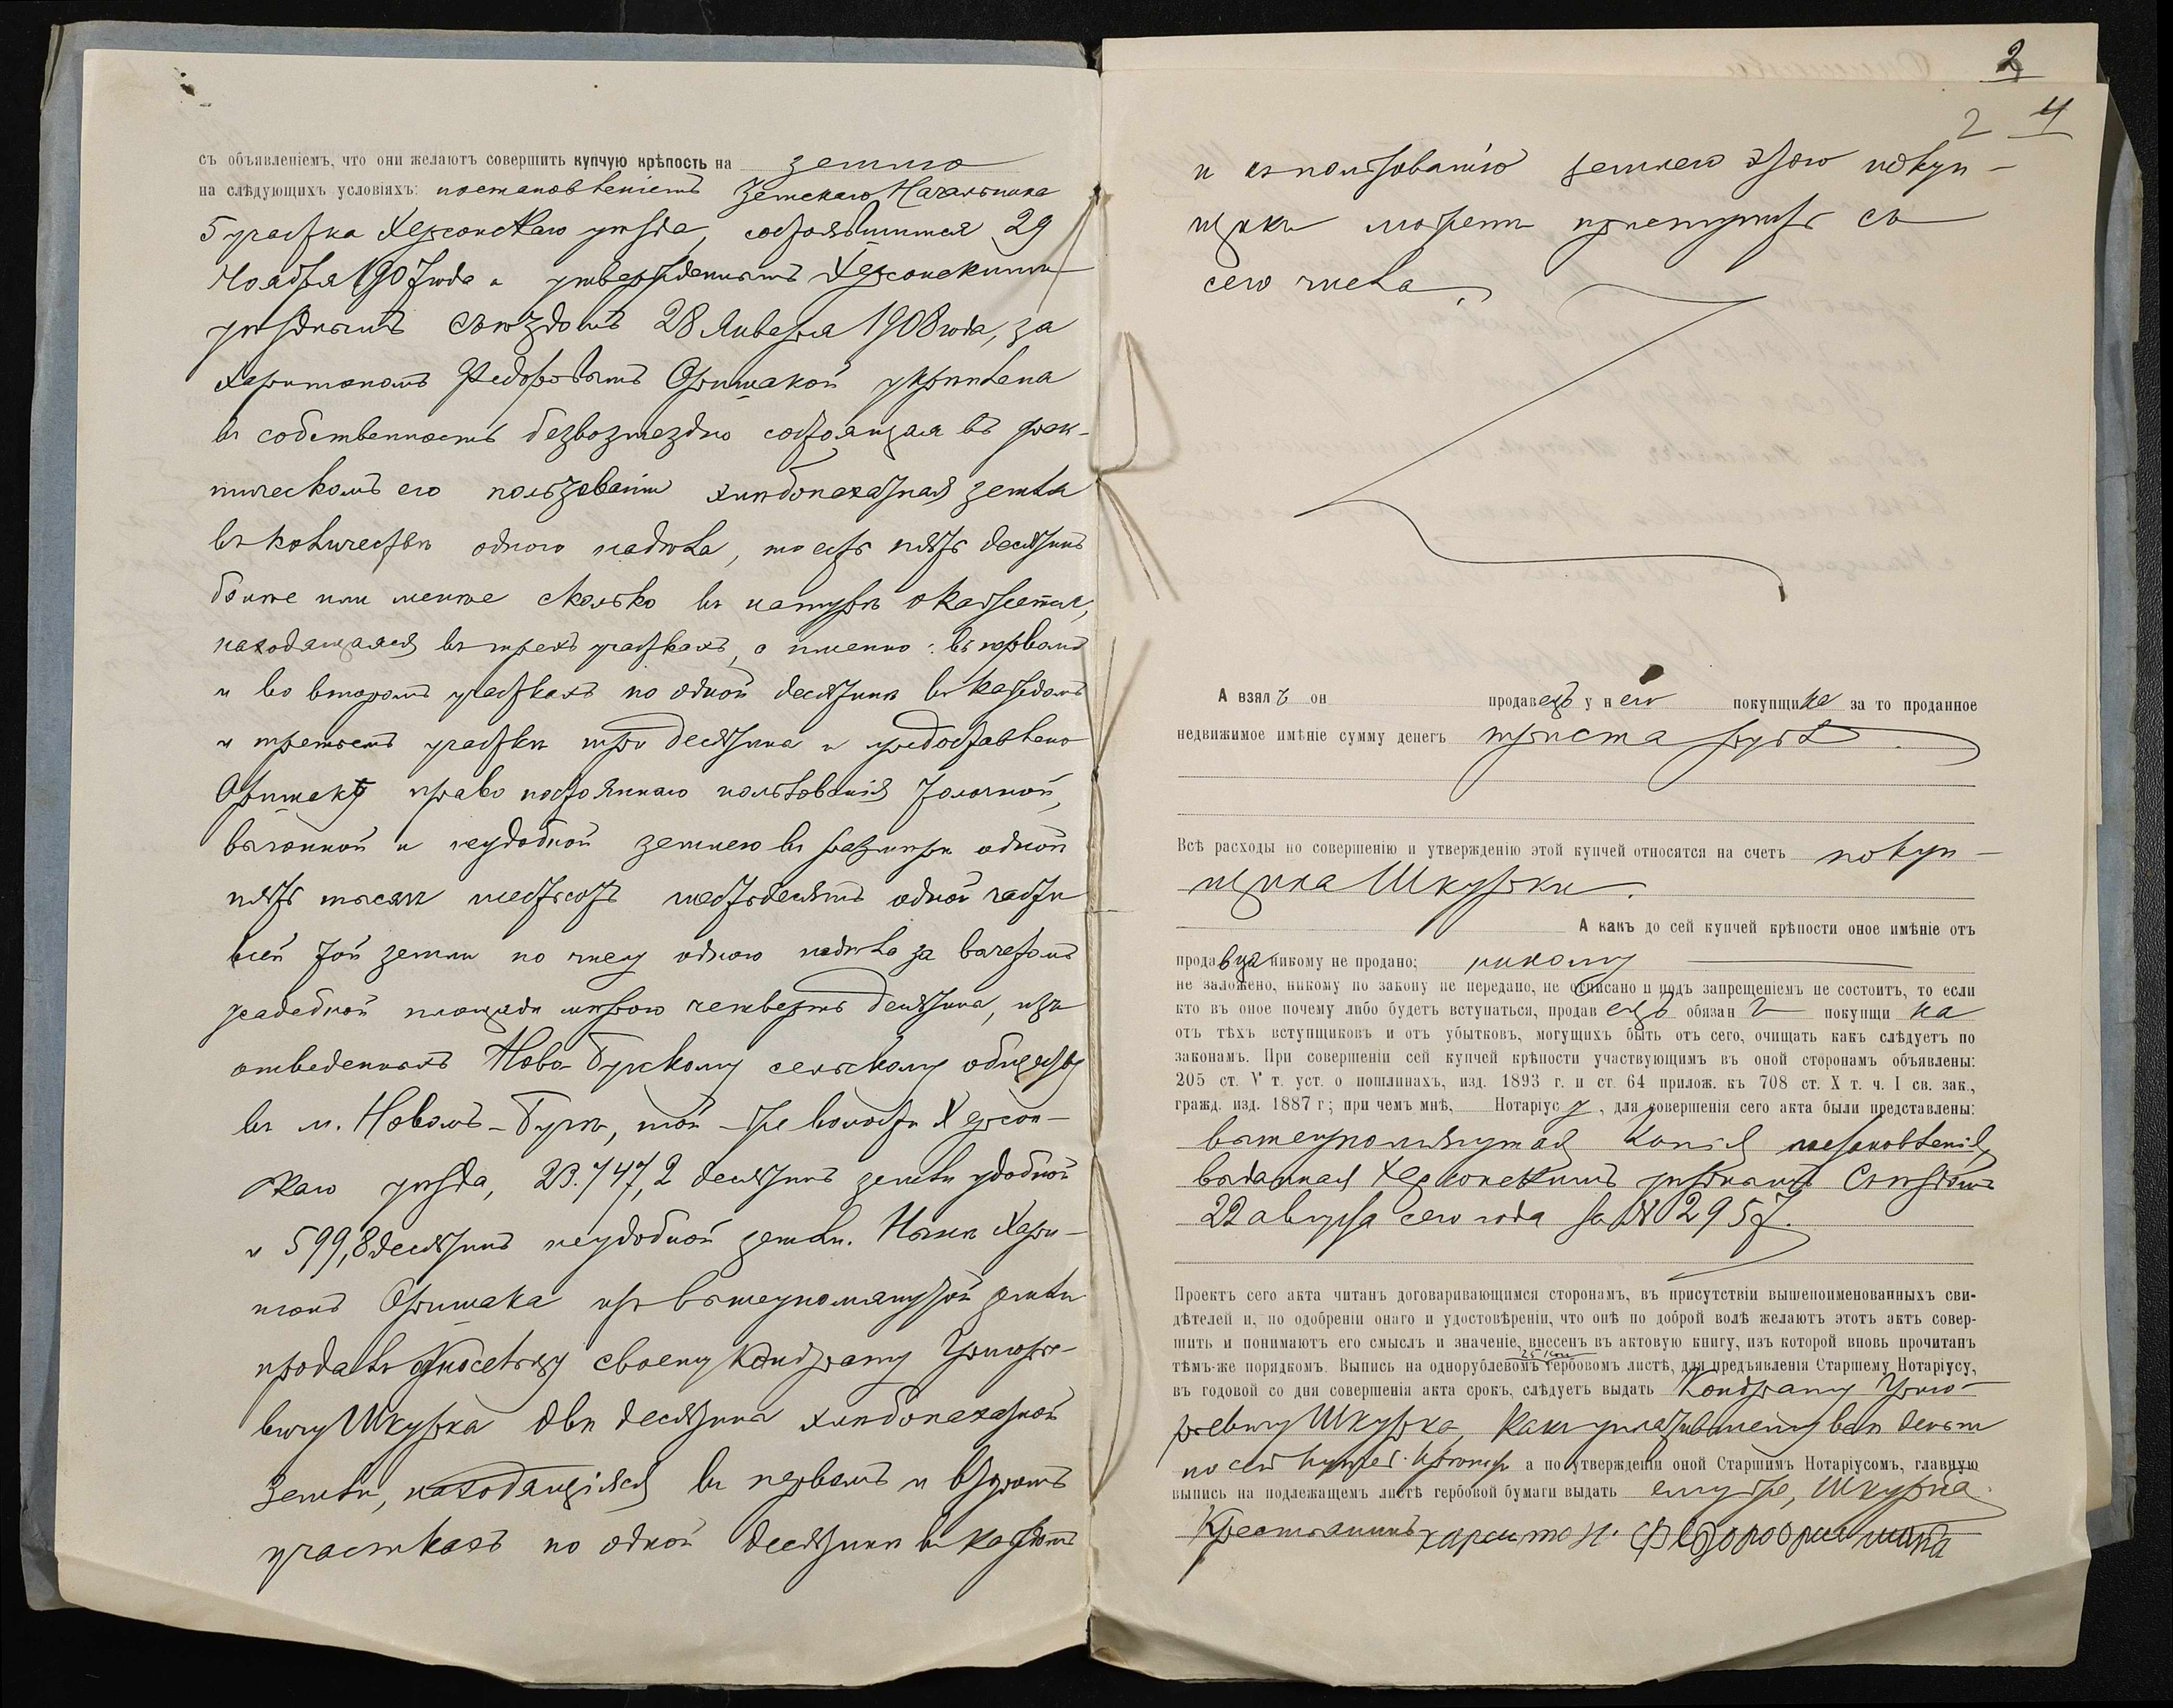 съ объявленіемъ, что они желаютъ совершить купчую крѣпость на землю
на слѣдующихъ условіяхъ: постановленіемъ Земскаго Начальника
5 участка Херсонскаго уѣзда, состоявшимся 29
Ноября 1907 года и утвержденнымъ Херсонскимъ
уѣзднымъ съѣздомъ 28 Января 1908 года, за
Харитономъ Федоровымъ Оришакой укрѣплена
въ собственность безвозмездно состоящая въ фак-
тическомъ его пользованіи хлѣбопахатная земля
въ количествѣ одного надѣла, то есть пять десятинъ
болѣе или менѣе сколько въ натурѣ окажется,
находящаяся въ трехъ участкахъ, а именно: въ первомъ
и во второмъ участкахъ по одной десятинѣ въ каждомъ
и третьемъ участкѣ три десятины и предоставлено
Оришакѣ право постояннаго пользованія толочной,
выгонной и неудобной землею въ размѣрѣ одной
пять тысячъ шестьсотъ шестьдесятъ одной части
всей той земли по числу одного надѣла за вычетомъ
усадебной площади мѣрою четверть десятины, изъ
отведенныхъ Ново-Бугскому сельскому обществу
въ м. Новомъ-Бугѣ, той-же волости Херсон-
скаго уѣзда, 23.747,2 десятинъ земли удобной
и 599,8 десятинъ неудобной земли. Нынѣ Хари-
тонъ Оришака изъ вышеупомянутой земли
продалъ односельцу своему Кондрату Григорье-
вичу Шкурка двѣ десятины хлѣбопахатной
земли, находящіяся въ первомъ и второмъ
участкахъ по одной десятинѣ въ каждомъ
2
2 4
и къ пользованію землею этою покуп-
щикъ можетъ приступить съ
сего числа.
А взялъ онъ продавецъ у него покупщика за то проданное
недвижимое имѣніе сумму денегъ триста руб.
Всѣ расходы по совершенію и утвержденію этой купчей относятся на счетъ покуп-
щика Шкурки.
А какъ до сей купчей крѣпости оное имѣніе отъ
продавца никому не продано; никому
не заложено, никому по закону не передано, не отписано и подъ запрещеніемъ не состоитъ, то если
кто въ оное почему либо будетъ вступаться, продавецъ обязанъ покупщика
отъ тѣхъ вступщиковъ и отъ убытковъ, могущихъ быть отъ сего, очищать какъ слѣдуетъ по
законамъ. При совершеніи сей купчей крѣпости участвующимъ въ оной сторонамъ объявлены:
205 ст. V т. уст. о пошлинахъ, изд. 1893 г. и ст. 64 прилож. къ 708 ст. X т. ч. I св. зак.,
гражд. изд. 1887 г; при чемъ мнѣ, Нотаріусу, для совершенія сего акта были представлены:
вышеупомянутая копія постановленія,
выданная Херсонскимъ уѣзднымъ Съѣздомъ
22 августа сего года за № 2957.
Проектъ сего акта читанъ договаривающимся сторонамъ, въ присутствіи вышепоименованныхъ сви-
дѣтелей и, по одобреніи онаго и удостовѣреніи, что онѣ по доброй волѣ желаютъ этотъ актъ совер-
шить и понимаютъ его смыслъ и значеніе, внесенъ въ актовую книгу, изъ которой вновь прочитанъ
25 коп
тѣмъ-же порядкомъ. Выпись на однорублевомъ гербовомъ листѣ, для предъявленія Старшему Нотаріусу,
въ годовой со дня совершенія акта срокъ, слѣдуетъ выдать Кондрату Григо-
рьевичу Шкурка, какъ уплатившему всѣ деньги
по сей купчей крѣпости а по утвержденіи оной Старшимъ Нотаріусомъ, главную
выпись на подлежащемъ листѣ гербовой бумаги выдать ему же, Шкурка.
Крестьянинъ Харитон Федоров Оришака